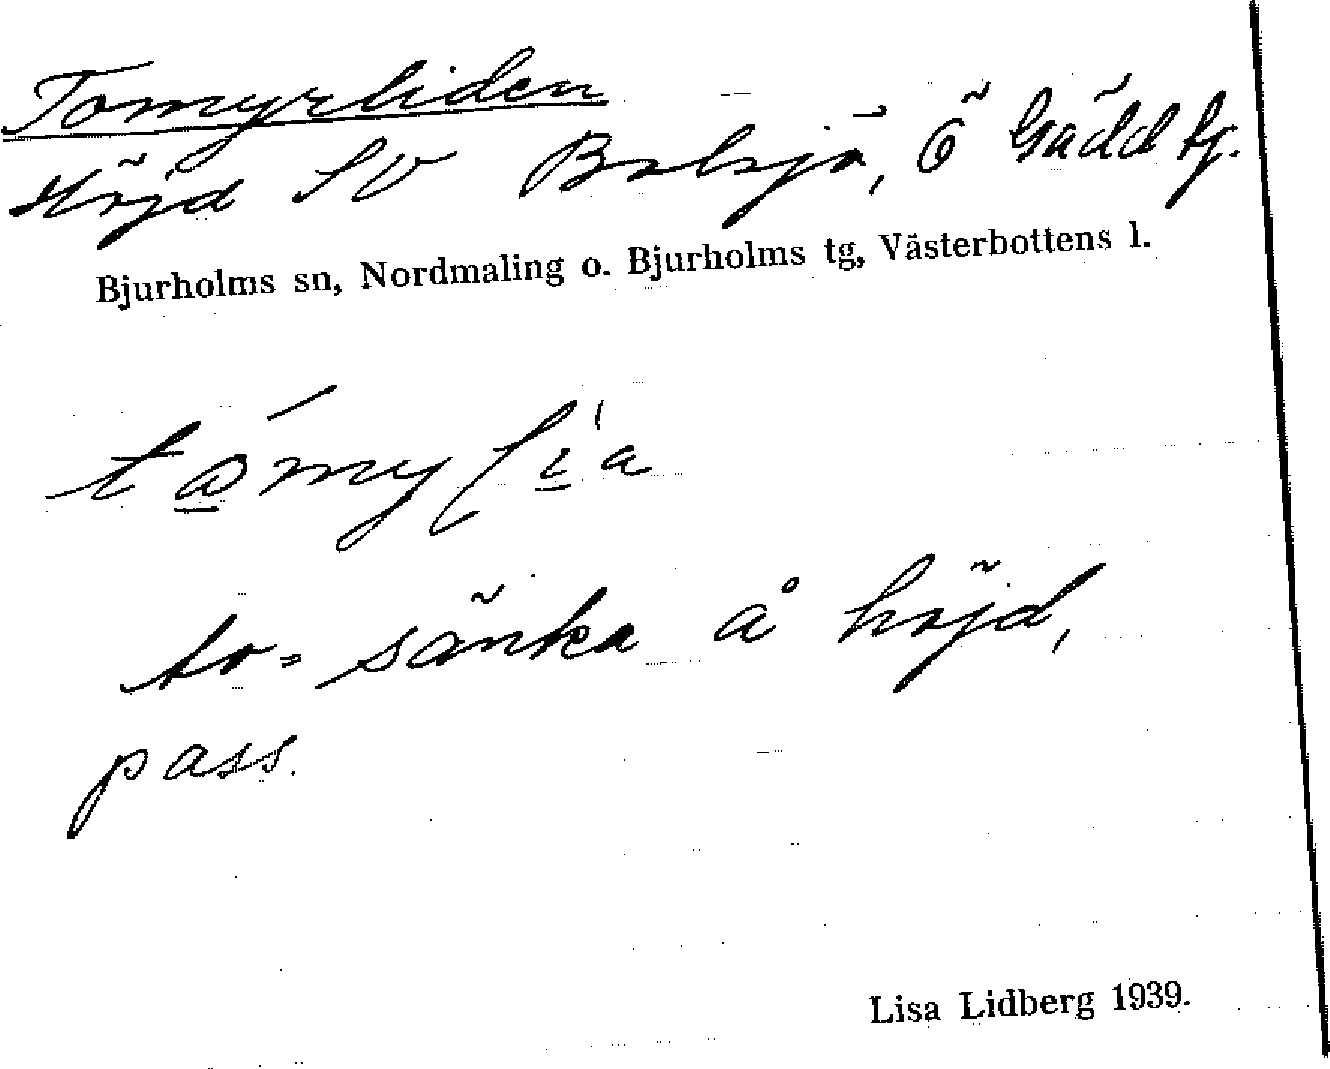 Tomyrliden
Höjd SV Balsjö, Ö Gäddtj.
Bjurholms sn, Nordmaling o. Bjurholms tg, Västerbottens l.
to = sänka å höjd,
pass.
Lisa Lidberg 1939.